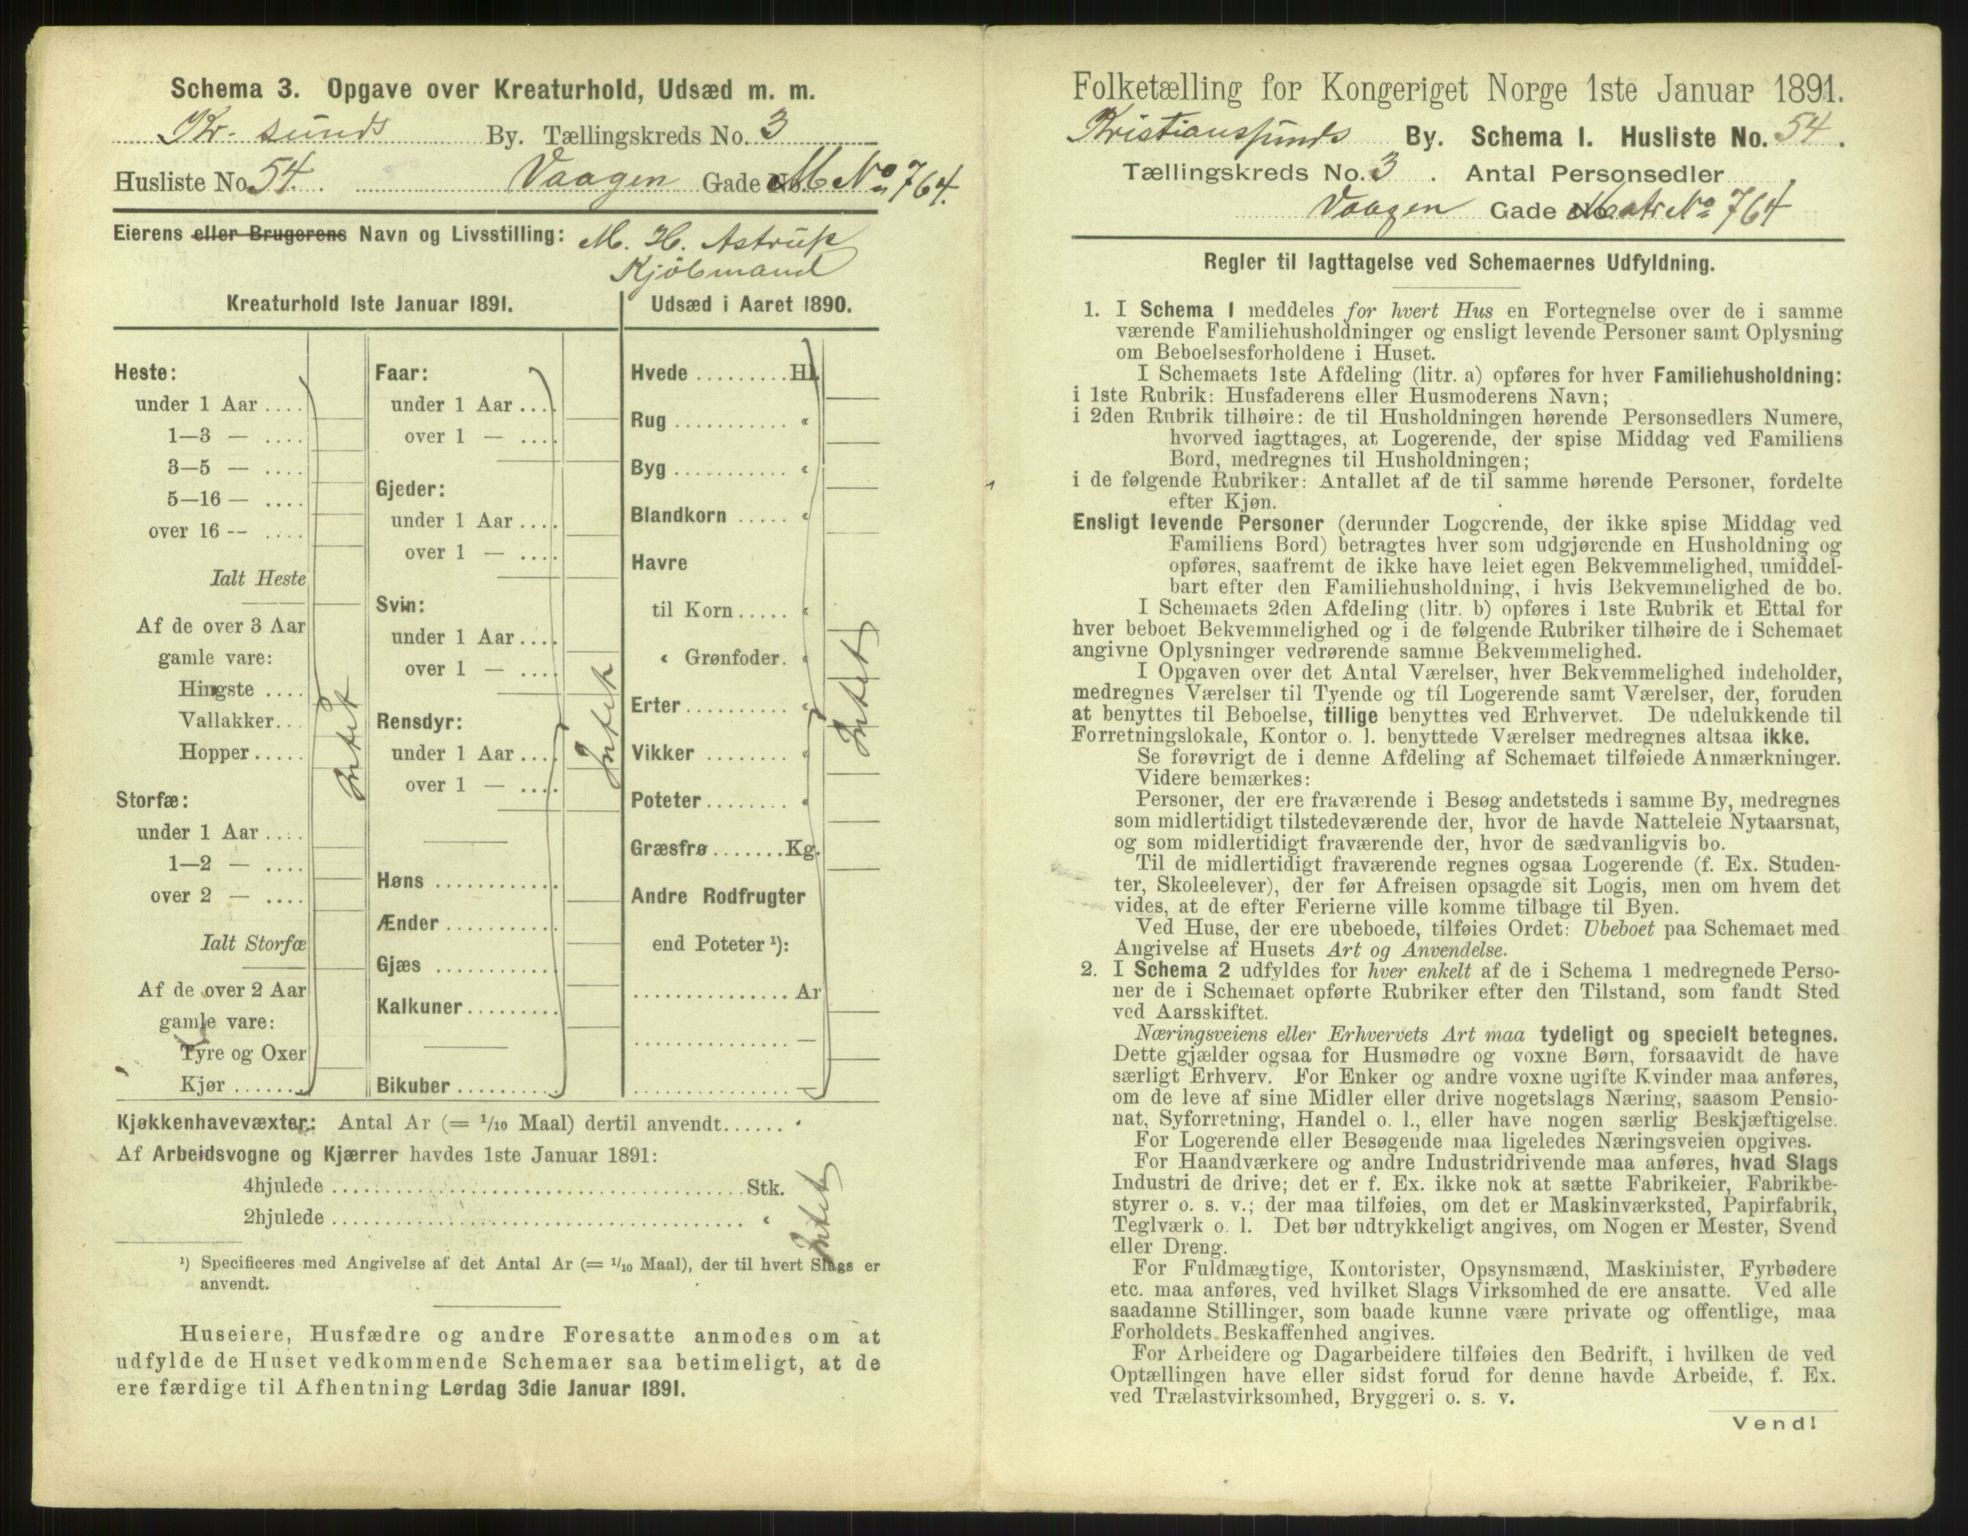 Schema 3. Opgave over Kreaturhold, Udsæd m. m.
Kr. sunds By. Tællingskreds No. 3
Husliste No. 54. Vaagen Gade M No 764.
Eierens eller Brugerens Navn og Livsstilling: M. H. Astrup
Kjöbmand
Kreaturhold 1ste Januar 1891.
Heste:
under 1 Aar ....
1—3 — ....
3—5 — ....
5—16 — ....
over 16 — ....
Ialt Heste
Af de over 3 Aar
gamle vare:
Hingste ....
Vallakker...
Hopper ....
Intet
Storfæ:
under 1 Aar ....
1—2 — ....
over 2 — ....
Ialt Storfæ
Af de over 2 Aar
gamle vare:
Tyre og Oxer
Kjør .......
Faar:
under 1 Aar ....
over 1 — ....
Gjeder:
under 1 Aar ....
over 1 — ....
Svin:
under 1 Aar ....
over 1 — ....
Rensdyr:
under 1 Aar ....
over 1 — ....
Intet
Høns ............
Ænder ...........
Gjæs ............
Kalkuner.........
Bikuber ..........
Udsæd i Aaret 1890.
Hvede ......... Hl.
Rug ........... «
Byg ........... «
Blandkorn ..... «
Havre
til Korn ..... «
« Grønfoder. «
Erter ......... «
Vikker ........ «
Poteter ........ «
Græsfrø ....... Kg.
Andre Rodfrugter
end Poteter ¹):
............... Ar
............... —
............... —
Intet
Kjøkkenhavevæxter: Antal Ar (= 1/10 Maal) dertil anvendt......
Af Arbeidsvogne og Kjærrer havdes 1ste Januar 1891:
4hjulede ........................................ Stk.
2hjulede ........................................ «
Intet
¹) Specificeres med Angivelse af det Antal Ar (= 1/10 Maal), der til hvert Slags er
anvendt.
Huseiere, Husfædre og andre Foresatte anmodes om at
udfylde de Huset vedkommende Schemaer saa betimeligt, at de
ere færdige til Afhentning Lørdag 3die Januar 1891.
Folketælling for Kongeriget Norge 1ste Januar 1891.
Kristianssunds By. Schema 1. Husliste No. 54.
Tællingskreds No. 3. Antal Personsedler .
Vaagen Gade Matr No 764
Regler til Iagttagelse ved Schemaernes Udfyldning.
1. I Schema 1 meddeles for hvert Hus en Fortegnelse over de i samme
værende Familiehusholdninger og ensligt levende Personer samt Oplysning
om Beboelsesforholdene i Huset.
I Schemaets 1ste Afdeling (litr. a) opføres for hver Familiehusholdning:
i 1ste Rubrik: Husfaderens eller Husmoderens Navn;
i 2den Rubrik tilhøire: de til Husholdningen hørende Personsedlers Numere,
hvorved iagttages, at Logerende, der spise Middag ved Familiens
Bord, medregnes til Husholdningen;
i de følgende Rubriker: Antallet af de til samme hørende Personer, fordelte
efter Kjøn.
Ensligt levende Personer (derunder Logerende, der ikke spise Middag ved
Familiens Bord) betragtes hver som udgjørende en Husholdning og
opføres, saafremt de ikke have leiet egen Bekvemmelighed, umiddel-
bart efter den Familiehusholdning, i hvis Bekvemmelighed de bo.
I Schemaets 2den Afdeling (litr. b) opføres i 1ste Rubrik et Ettal for
hver beboet Bekvemmelighed og i de følgende Rubriker tilhøire de i Schemaet
angivne Oplysninger vedrørende samme Bekvemmelighed.
I Opgaven over det Antal Værelser, hver Bekvemmelighed indeholder,
medregnes Værelser til Tyende og til Logerende samt Værelser, der, foruden
at benyttes til Beboelse, tillige benyttes ved Erhvervet. De udelukkende til
Forretningslokale, Kontor o. l. benyttede Værelser medregnes altsaa ikke.
Se forøvrigt de i denne Afdeling af Schemaet tilføiede Anmærkninger.
Videre bemærkes:
Personer, der ere fraværende i Besøg andetsteds i samme By, medregnes
som midlertidigt tilstedeværende der, hvor de havde Natteleie Nytaarsnat,
og som midlertidigt fraværende der, hvor de sædvanligvis bo.
Til de midlertidigt fraværende regnes ogsaa Logerende (f. Ex. Studen-
ter, Skoleelever), der før Afreisen opsagde sit Logis, men om hvem det
vides, at de efter Ferierne ville komme tilbage til Byen.
Ved Huse, der ere ubeboede, tilføies Ordet: Ubeboet paa Schemaet med
Angivelse af Husets Art og Anvendelse.
2. I Schema 2 udfyldes for hver enkelt af de i Schema 1 medregnede Perso-
ner de i Schemaet opførte Rubriker efter den Tilstand, som fandt Sted
ved Aarsskiftet.
Næringsveiens eller Erhvervets Art maa tydeligt og specielt betegnes.
Dette gjælder ogsaa for Husmødre og voxne Børn, forsaavidt de have
særligt Erhverv. For Enker og andre voxne ugifte Kvinder maa anføres,
om de leve af sine Midler eller drive nogetslags Næring, saasom Pensio-
nat, Syforretning, Handel o. l., eller have nogen særlig Beskjæftigelse.
For Logerende eller Besøgende maa ligeledes Næringsveien opgives.
For Haandværkere og andre Industridrivende maa anføres, hvad Slags
Industri de drive; det er f. Ex. ikke nok at sætte Fabrikeier, Fabrikbe-
styrer o. s. v.; der maa tilføies, om det er Maskinværksted, Papirfabrik,
Teglværk o. l. Det bør udtrykkeligt angives, om Nogen er Mester, Svend
eller Dreng.
For Fuldmægtige, Kontorister, Opsynsmænd, Maskinister, Fyrbødere
etc. maa anføres, ved hvilket Slags Virksomhed de ere ansatte. Ved alle
saadanne Stillinger, som baade kunne være private og offentlige, maa
Forholdets Beskaffenhed angives.
For Arbeidere og Dagarbeidere tilføies den Bedrift, i hvilken de ved
Optællingen have eller sidst forud for denne havde Arbeide, f. Ex.
ved Trælastvirksomhed, Bryggeri o. s. v.
Vend!